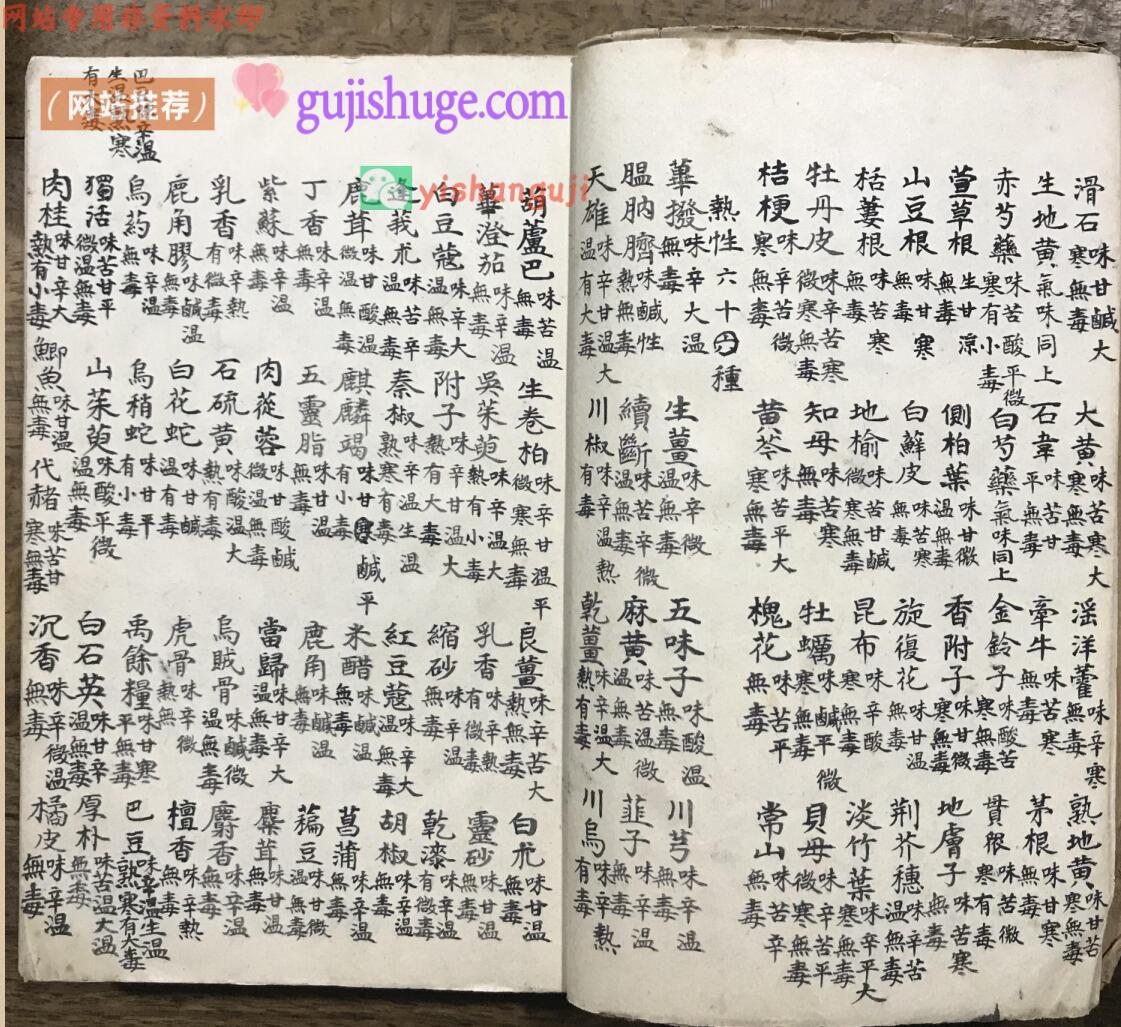 网站专用非资料水印
（网站推荐）
gujishuge.com
yishanguji
滑石味甘鹹大寒無毒 大黃味苦寒大寒無毒 滛洋藿味辛寒無毒 熟地黃味甘苦寒無毒
生地黃氣味同上 石韋味苦甘平無毒 牽牛味苦寒無毒 茅根味甘寒無毒
赤芍藥味苦酸平微寒有小毒 白芍藥氣味同上 金鈴子味酸苦寒無毒 貫眾味苦微寒有毒
萱草根生甘凉無毒 側柏葉味甘微溫無毒 香附子味甘微寒無毒 地膚子味苦寒無毒
山豆根味甘寒無毒 白鮮皮味苦寒無毒 旋復花味甘溫無毒 荆芥穗味辛苦溫無毒
栝蔞根味苦寒無毒 地榆味苦甘鹹微寒無毒 昆布味辛酸寒無毒 淡竹葉味辛平大寒無毒
牡丹皮味辛寒微寒無毒 知母味苦寒無毒 牡蠣味鹹平微寒無毒 貝母味辛苦平微寒無毒
桔梗味辛苦微寒無毒 黃芩味苦平大寒無毒 槐花味苦平無毒 常山味苦辛無毒
熱性六十種
蓽撥味辛大溫無毒 生薑味辛微溫無毒 五味子味酸溫無毒 川芎味辛溫無毒
膃肭臍味鹹性熱無毒 續斷味苦辛微溫無毒 麻黃味苦溫微溫無毒 韮子味辛溫無毒
天雄味辛溫大溫有大毒 川椒味辛溫熱有毒 乾薑味辛溫大熱有毒 川烏味辛熱有毒
胡蘆巴味苦溫無毒 生卷柏味辛甘溫平微寒無毒 良薑味辛苦大熱無毒 白朮味甘溫無毒
蓽澄茄味辛溫無毒 吳茱萸味辛溫大熱有小毒 乳香味辛熱有微毒 靈砂味甘溫無毒
白豆蔻味辛大溫無毒 附子味辛甘溫大熱有大毒 縮砂味辛溫無毒 乾漆味辛溫有微毒
蓬莪朮味苦辛溫無毒 秦椒味辛溫生溫熟寒有毒 紅豆蔻味辛大溫無毒 胡椒味辛溫無毒
鹿茸味甘酸溫微溫無毒 麒麟竭味甘鹹平有小毒 米醋味鹹溫無毒 菖蒲味辛溫無毒
丁香味辛溫無毒 五靈脂味甘溫無毒 鹿角味鹹溫無毒 藊豆味甘微溫無毒
紫蘇味辛溫無毒 肉蓯蓉味甘酸鹹微溫無毒 當歸味辛大溫無毒 麋茸味甘溫無毒
乳香味辛熱有微毒 石硫黃味酸溫大熱有毒 烏賊骨味鹹微溫無毒 麝香味辛溫無毒
鹿角膠味鹹溫無毒 白花蛇味甘鹹溫有毒 虎骨味辛微熱無 檀香味辛熱無毒
烏药味辛溫無毒 烏稍蛇味甘平有小毒 禹餘糧味甘寒平無毒 巴豆味辛溫生溫熟寒有大毒
獨活味苦甘平微溫無毒 山茱萸味酸平微溫無毒 白石英味甘辛溫無毒 厚朴味苦溫大溫無毒
肉桂味甘辛大熱有小毒 鯽魚味甘溫無毒 代赭味苦甘寒無毒 沉香味辛微溫無毒 橘皮味辛溫無毒